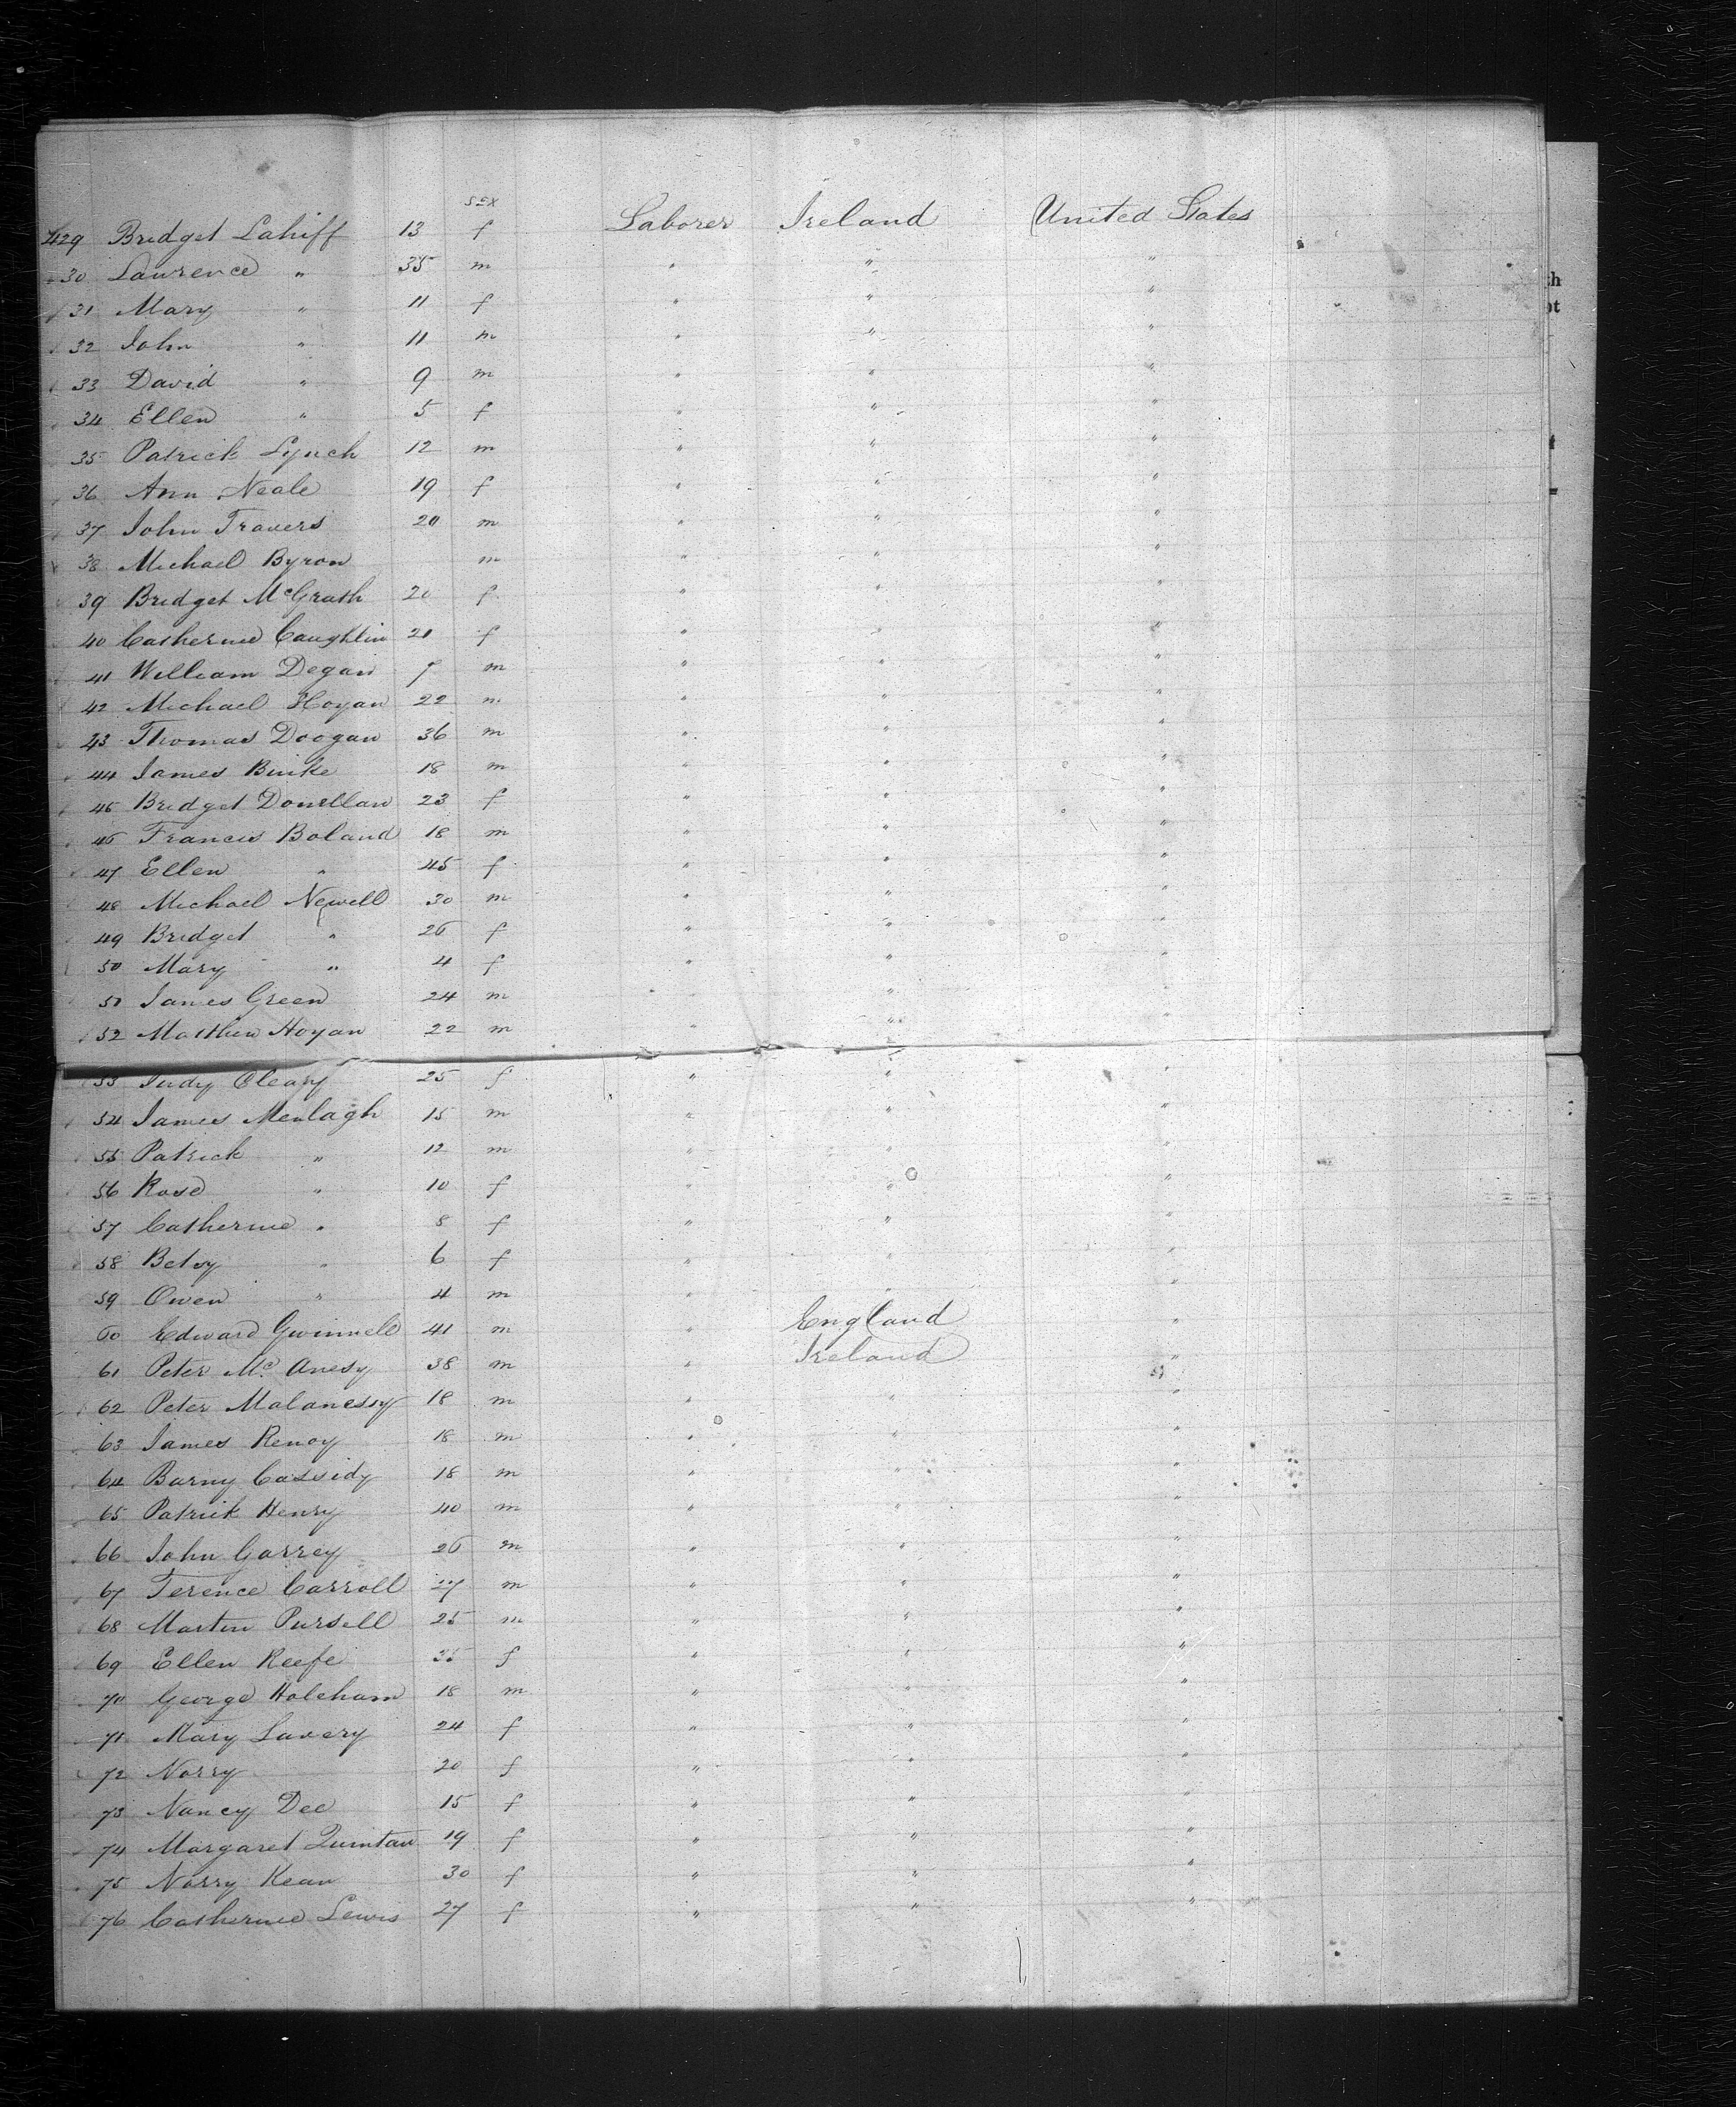 sex
429 Bridget Lahiff 13 f Laborer Ireland United States
30 Lawrence " 35 m " " "
31 Mary " 11 f " " "
32 John " 11 m " " "
33 David " 9 m " " "
34 Ellen " 5 f " " "
35 Patrick Lynch 12 m " " "
36 Ann Neale 19 f " " "
37 John Travers 20 m " " "
38 Michael Byron m " " "
39 Bridget McGrath 20 f " " "
40 Catherine Caughlin 20 f " " "
41 William Degan m " " "
42 Michael Hogan 22 m " " "
43 Thomas Doogan 36 m " " "
44 James Burke 18 m " " "
45 Bridget Donellan 23 f " " "
46 Francis Boland 18 m " " "
47 Ellen " 45 f " " "
48 Michael Newell 30 m " " "
49 Bridget " 26 f " " "
50 Mary " 4 f " " "
51 James Green 24 m " " "
52 Matthew Hogan 22 m " " "
53 Judy Cleary 25 f " " "
54 James Menlagh 15 m " " "
55 Patrick " 12 m " " "
56 Rose " 10 f " " "
57 Catherine " 8 f " " "
58 Betsy " 6 f " " "
59 Owen " 4 m " " "
60 Edward Gwinnell 41 m " England "
61 Peter Mc Anesy 38 m " Ireland "
62 Peter Malanessy 18 m " " "
63 James Renoy 18 m " " "
64 Barny Cassidy 18 m " " "
65 Patrick Henry 40 m " " "
66 John Garrey 26 m " " "
67 Terence Carroll 27 m " " "
68 Martin Pursell 25 m " " "
69 Ellen Keefe f " " "
70 George Holeham 18 m " " "
71 Mary Lavery 24 f " " "
72 Norry 20 f " " "
73 Nancy Dee 15 f " " "
74 Margaret Quintan 19 f " " "
75 Norry Kean 30 f " " "
76 Catherine Lewis 27 f " " "